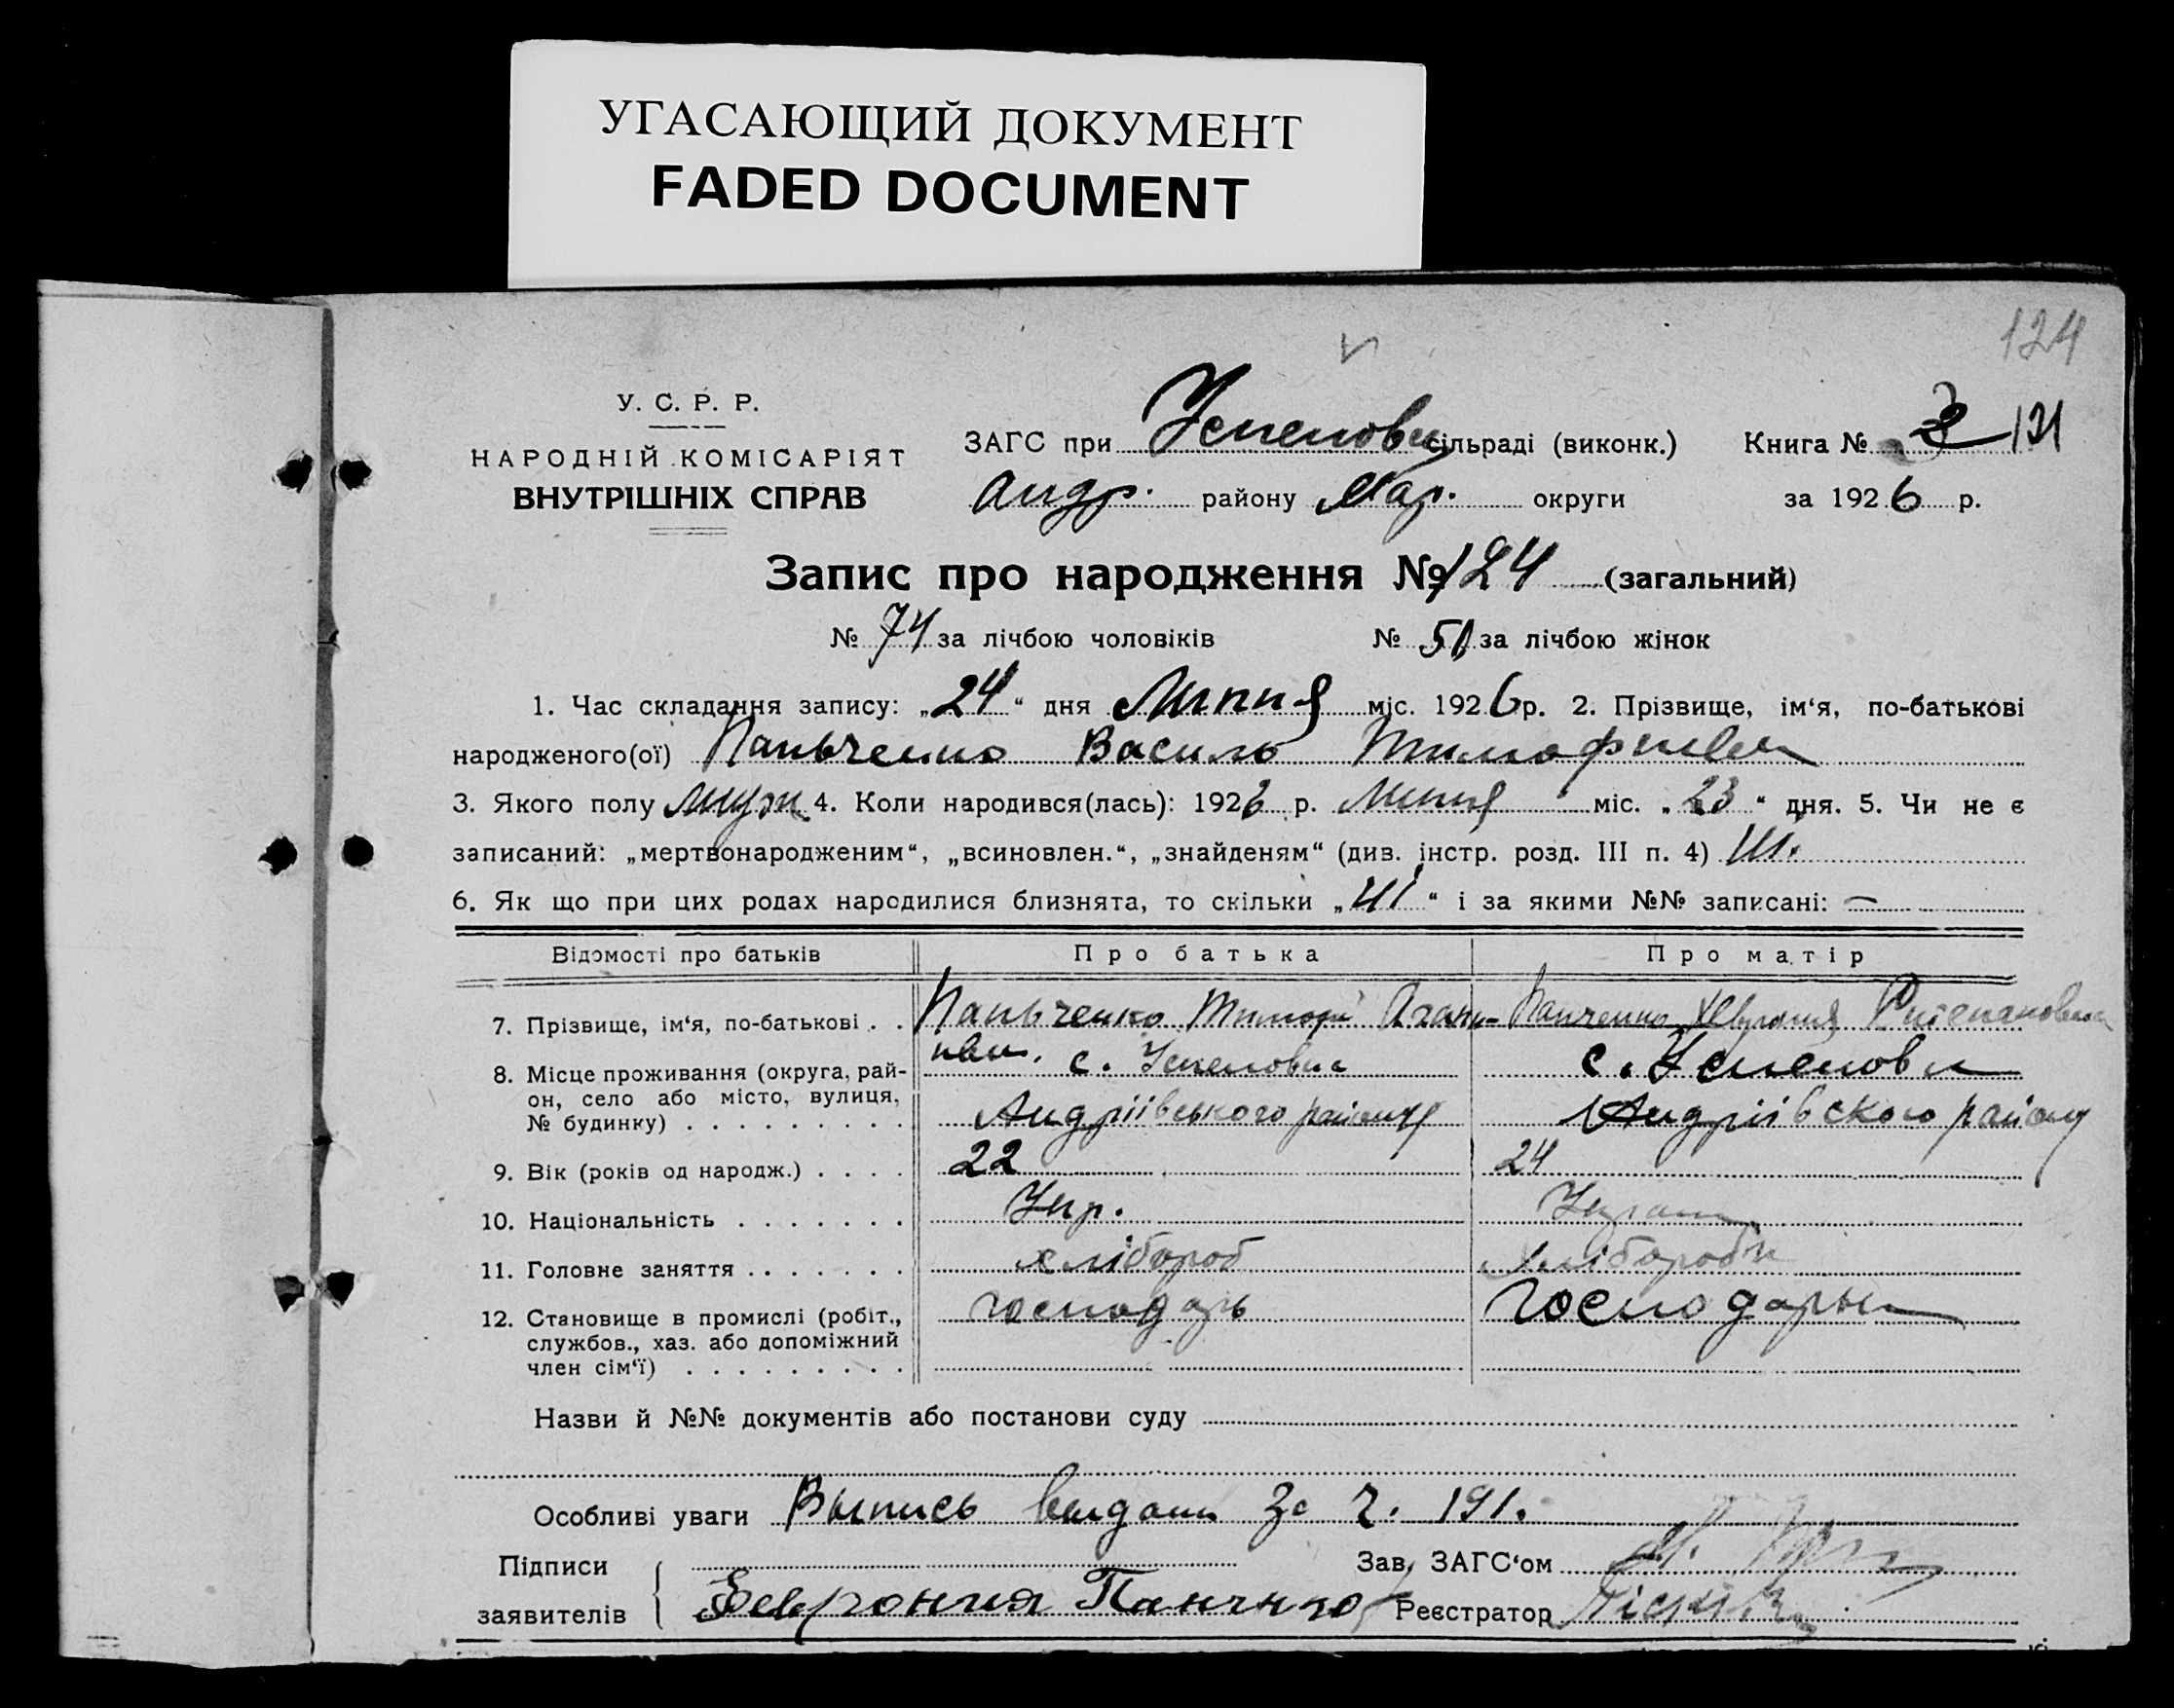 УГАСАЮЩИЙ ДОКУМЕНТ
FADED DOCUMENT
124
У. С. Р. Р.
НАРОДНІЙ КОМІСАРІЯТ
ВНУТРІШНІХ СПРАВ
ЗАГС при Успенови сільраді (виконк.) Книга № 3 121
Андр. району Мар. округи за 1926 р.
Запис про народження № 124 (загальний)
№ 74 за лічбою чоловіків № 50 за лічбою жінок
1. Час складання запису: „24“ дня Липня міс. 1926 р. 2. Прізвище, ім‘я, по-батькові
народженого(ої) Паньченко Василь
3. Якого полу муж. 4. Коли народився(лась): 1926 р. Липня міс. „23“ дня. 5. Чи не є
записаний: „мертвонародженим“, „всиновлен.“, „знайденям“ (див. інстр. розд. III п. 4)
6. Як що при цих родах народилися близнята, то скільки „ “ і за якими №№ записані: —
Відомості про батьків Про батька Про матір
7. Прізвище, ім‘я, по-батькові . . Паньченко Панченко
8. Місце проживання (округа, рай- с. Успеновка с. Успеновки
он, село або місто, вулиця, Андріівського району Андріівского району
№ будинку) . . . . . . . . .
9. Вік (років од народж.) . . . . 22 24
10. Національність . . . . . . . Укр.
11. Головне заняття . . . . . . . хлібороб хлібороб
12. Становище в промислі (робіт., господарь господарка
службов., хаз. або допоміжний
член сім‘ї) . . . . . . . . .
Назви й №№ документів або постанови суду
Особливі уваги Выпись выдана за ч. 191.
Підписи Зав. ЗАГС‘ом
заявителів Панченко Реєстратор